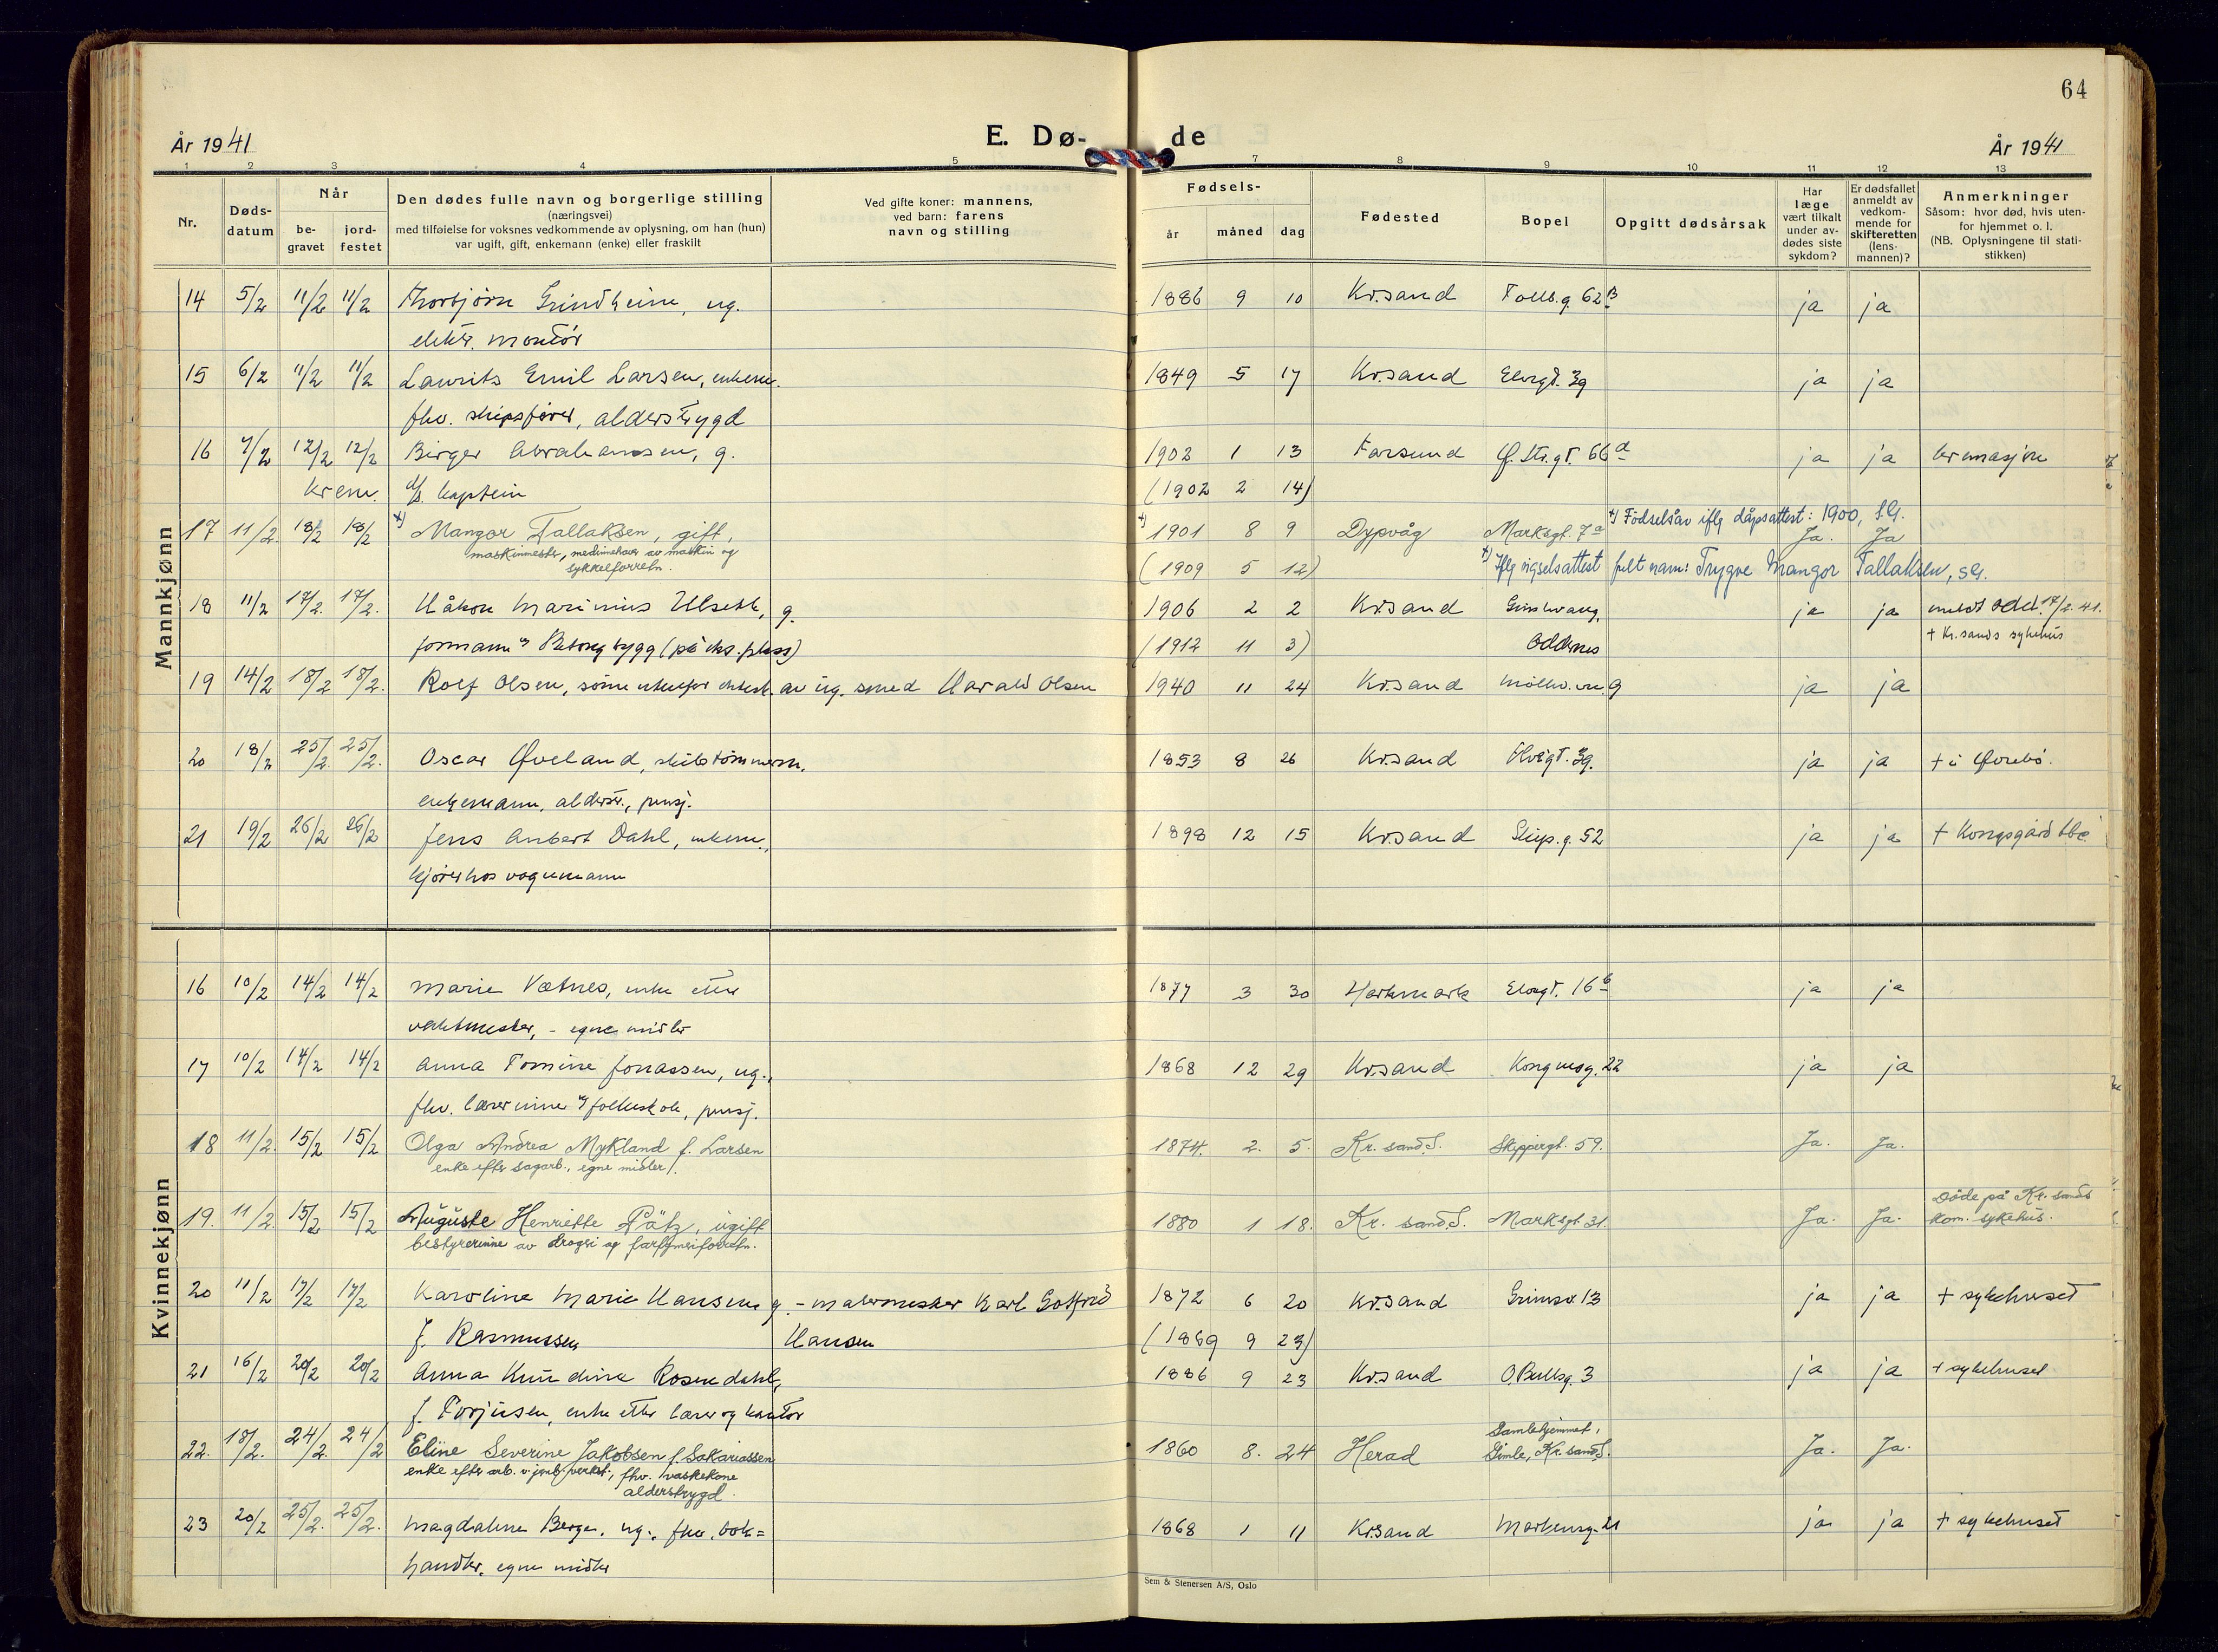 64
År 1941
E. Dø-
de
År 1941
1 2 3 4 5 7 8 9 10 11 12 13
Nr.
Døds-
datum
Når
be-
gravet
jord-
festet
Den dødes fulle navn og borgerlige stilling
(næringsvei)
med tilføielse for voksnes vedkommende av oplysning, om han (hun)
var ugift, gift, enkemann (enke) eller fraskilt
Ved gifte koner: mannens,
ved barn: farens
navn og stilling
Fødsels-
år måned dag
Fødested
Bopel
Opgitt dødsårsak
Har
læge
vært tilkalt
under av-
dødes siste
sykdom?
Er dødsfallet
anmeldt av
vedkom-
mende for
skifteretten
(lens-
mannen)?
Anmerkninger
Såsom: hvor død, hvis uten-
for hjemmet o. l.
(NB. Oplysningene til stati-
stikken)
Mannkjønn
14 5/2 11/2 11/2 Thorbjørn Grindheim, ug. 1886 9 10 Kr.sand Tollb.g. 62B ja ja
elektr. montør
15 6/2 11/2 11/2 Laurits Emil Larsen, enkem. 1849 5 17 Kr.sand Elvegt. 39 ja ja
fhv. skipsfører, alderstrygd
16 7/2 12/2 12/2 Birger Abrahamsen, g. 1902 1 13 Farsund Ø. Str.gt. 66a ja ja kremasjon
krem. d/s. kaptein (1902 2 14)
17 11/2 18/2 18/2 +) Mangor Tallaksen, gift, +) 1901 8 9 Dypvåg Marksgt. 7a +) Fødselsår iflg dåpsattest: 1900, Ja. Ja
maskinmester, medinnehaver av maskin og
sykkelforretn. (1909 5 12) +) Iflg vigselsattest fullt navn: Trygve Mangor Tallaksen,
18 11/2 17/2. 17/2. Håkon Marinius Ulseth, g. 1906 2 2 Kr.sand ja ja meldt Odd. 17/2. 41.
formann v/ Betong bygg (på eks. plass) (1912 11 3) Oddernes + Kr.sands sykehus
19 14/2 18/2 18/2. Rolf Olsen, sønn utenfor ektesk. av ug. smed Harald Olsen 1940 11 24 Kr.sand Møllev.vn. 9 ja ja
20 18/2 25/2. 25/2. Oscar Øveland, skibstømmerm. 1853 8 26 Kr.sand Elvegt. 39. ja ja + i Øvrebø.
enkemann, alderstr., pensj.
21 19/2 26/2 26/2 Jens Anbert Dahl, enkem., 1898 12 15 Kr.sand Skip.g. 52 ja ja + Kongsgård
kjører hos vognmann
Kvinnekjønn
16 10/2 14/2 14/2 Marie Vatnes, enke etter 1877 3 30 Harkmark Elvegt. 16b ja ja
vaktmester, - egne midler
17 10/2 14/2 14/2 Anna Tomine Jonassen, ug., 1868 12 29 Kr.sand Kongensg. 22 ja ja
fhv. lærerinne v/ folkeskole, pensj.
18 11/2. 15/2 15/2 Olga Andrea Mykland f. Larsen 1874. 2. 5. Kr. sand S. Skippergt. 59. Ja. Ja.
enke efter sagarb., egne midler/.
19. 11/2. 15/2 15/2 Auguste Henriette Pätz, ugift 1880 1 18. Kr. sand S. Marksgt. 31. Ja. Ja. Døde på Kr. sands
bestyrerinne av drogeri og parfymeriforretn. kom. sykehus.
20 11/2 17/2 17/2 Karoline Marie Hansen g. - malermester Karl Gotfred 1872 6 20 Kr.sand Grimsv. 13 ja ja + sykehuset
f. Rasmussen Hansen (1869 9 23)
21 16/2 20/2 20/2 Anna Kundine Rosendahl, 1886 9 23 Kr.sand O. Bullsg. 3 ja ja + sykehuset
f. Torjusen, enke etter lærer og kantor
22. 18/2. 24/2. 24/2 Eline Severine Jakobsen f. Sakariassen 1860 8. 24 Herad Samlehjemmet, Gimle, Kr. sand S. Ja. Ja.
enke efter arb. v. jernb. verkst., fhv. vaskekone
alderstrygd.
23 20/2 25/2. 25/2. Magdalene Berge, ug., fhv. bok= 1868 1 11 Kr.sand Markensg. 21 ja ja + sykehuset
handler, egne midler
Sem & Stenersen A/S, Oslo